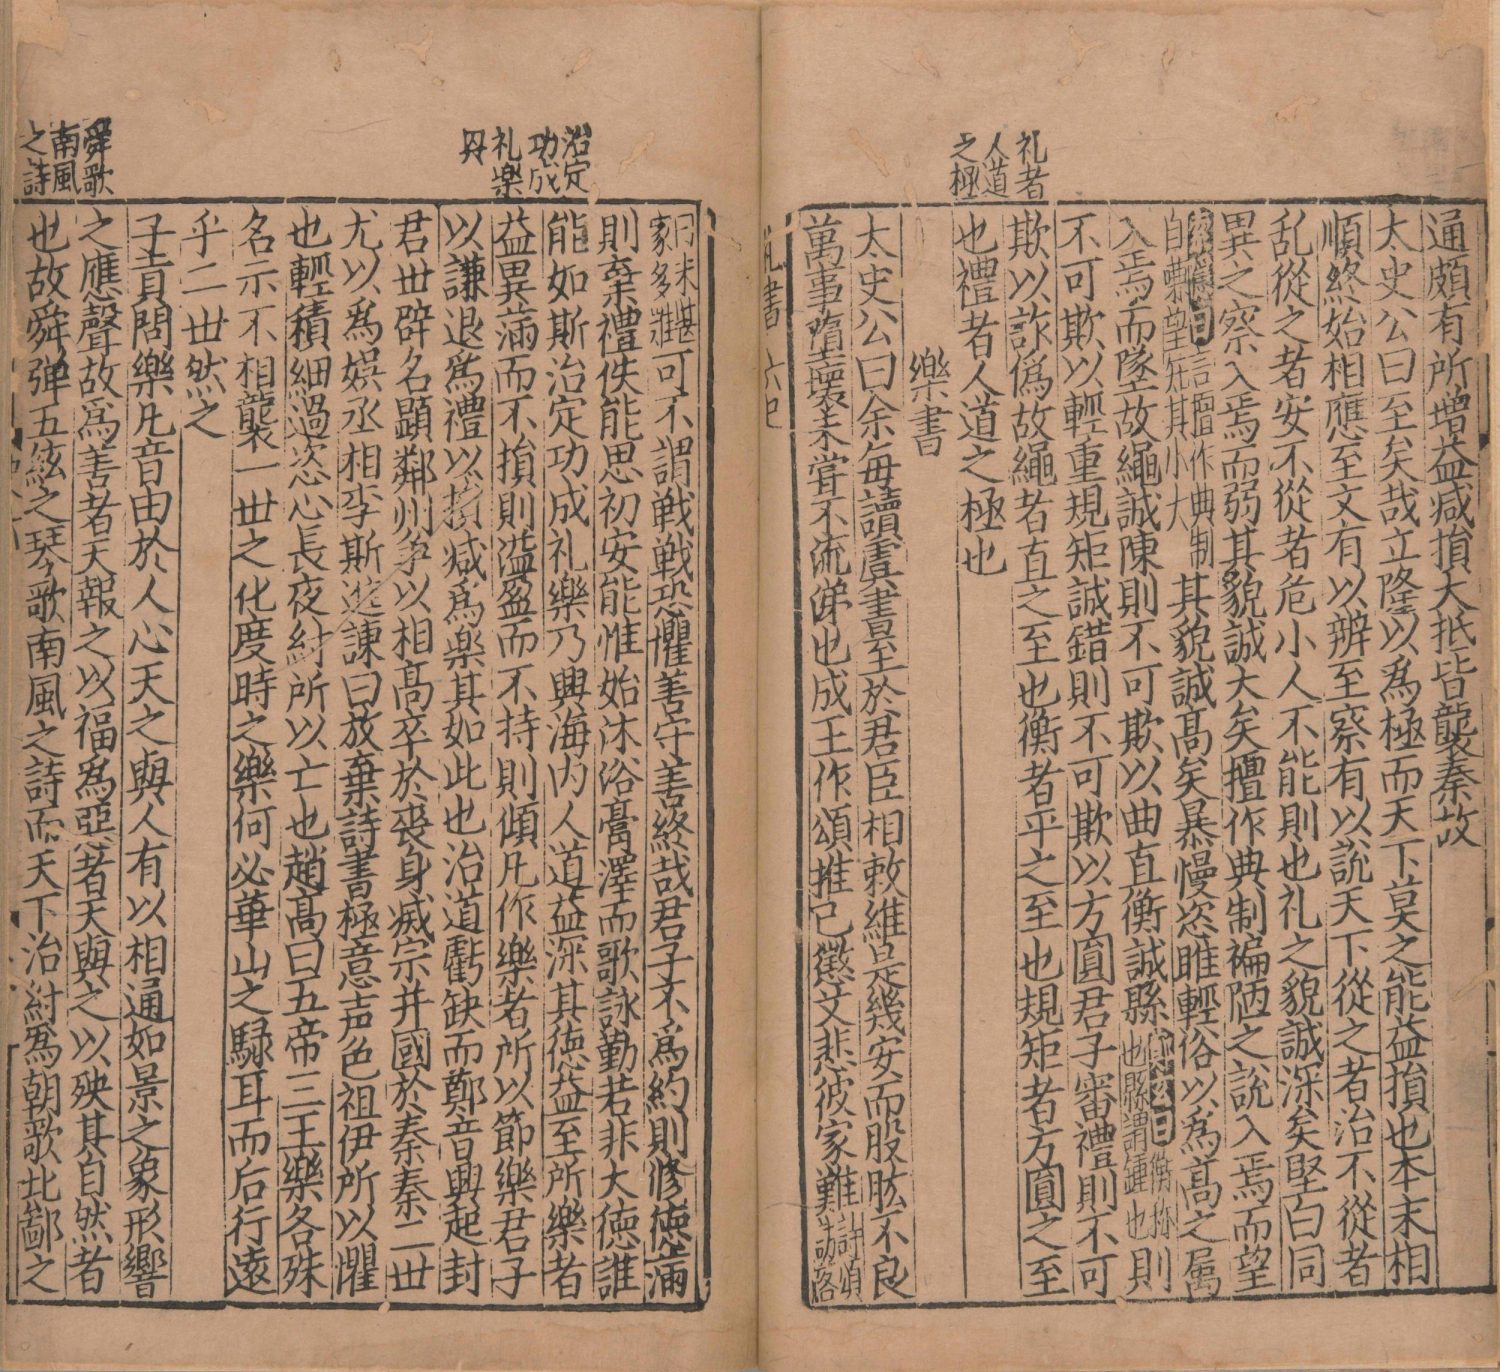 礼者
人道
之極
通頗有所增益减損大抵皆襲秦故
太史公曰至矣哉立隆以為極而天下莫之能益損也本末相
順終始相應至文有以辨至察有以説天下從之者治不從者
乱從之者安不從者危小人不能則也礼之貌誠深矣堅白同
異之察入焉而弱其貌誠大矣擅作典制褊陋之説入焉而望
言擅作典制
自嘫望知其小大
其貌誠高矣暴慢恣睢輕俗以為高之属
入焉而墜故繩誠陳則不可欺以曲直衡誠縣
衡称
也縣謂鍾也
則
不可欺以輕重規矩誠錯則不可欺以方圓君子審禮則不可
欺以詐偽故繩者直之至也衡者平之至也規矩者方圓之至
也禮者人道之極也
樂書
太史公曰余每讀虞書至於君臣相敕維是幾安而股肱不良
萬事墮壞未甞不流涕也成王作頌推己懲艾悲彼家難
治定
功成
礼楽
舜歌
南風
之詩
家多難
可不謂戦戦恐懼善守善終哉君子不為約則修徳滿
則棄禮佚能思初安能惟始沐浴膏澤而歌詠勤若非大徳誰
能如斯治定功成礼樂乃興海内人道益深其徳益至所樂者
益異滿而不損則溢盈而不持則傾凡作樂者所以節樂君子
以謙退爲禮以損减爲楽其如此也治道虧缺而鄭音興起封
君世辟名顕鄰州争以相高卒於喪身滅宗并國於秦秦二世
尤以爲娯丞相李斯進諫曰放棄詩書極意声色祖伊所以懼
也輕積細過恣心長夜紂所以亡也趙高曰五帝三王樂各殊
名示不相襲一世之化度時之樂何必華山之騄耳而后行遠
乎二世然之
子貢問樂凡音由於人心天之與人有以相通如景之象形響
之應聲故爲善者天報之以福爲惡者天與之以殃其自然者
也故舜弾五絃之琴歌南風之詩而天下治紂爲朝歌北鄙之